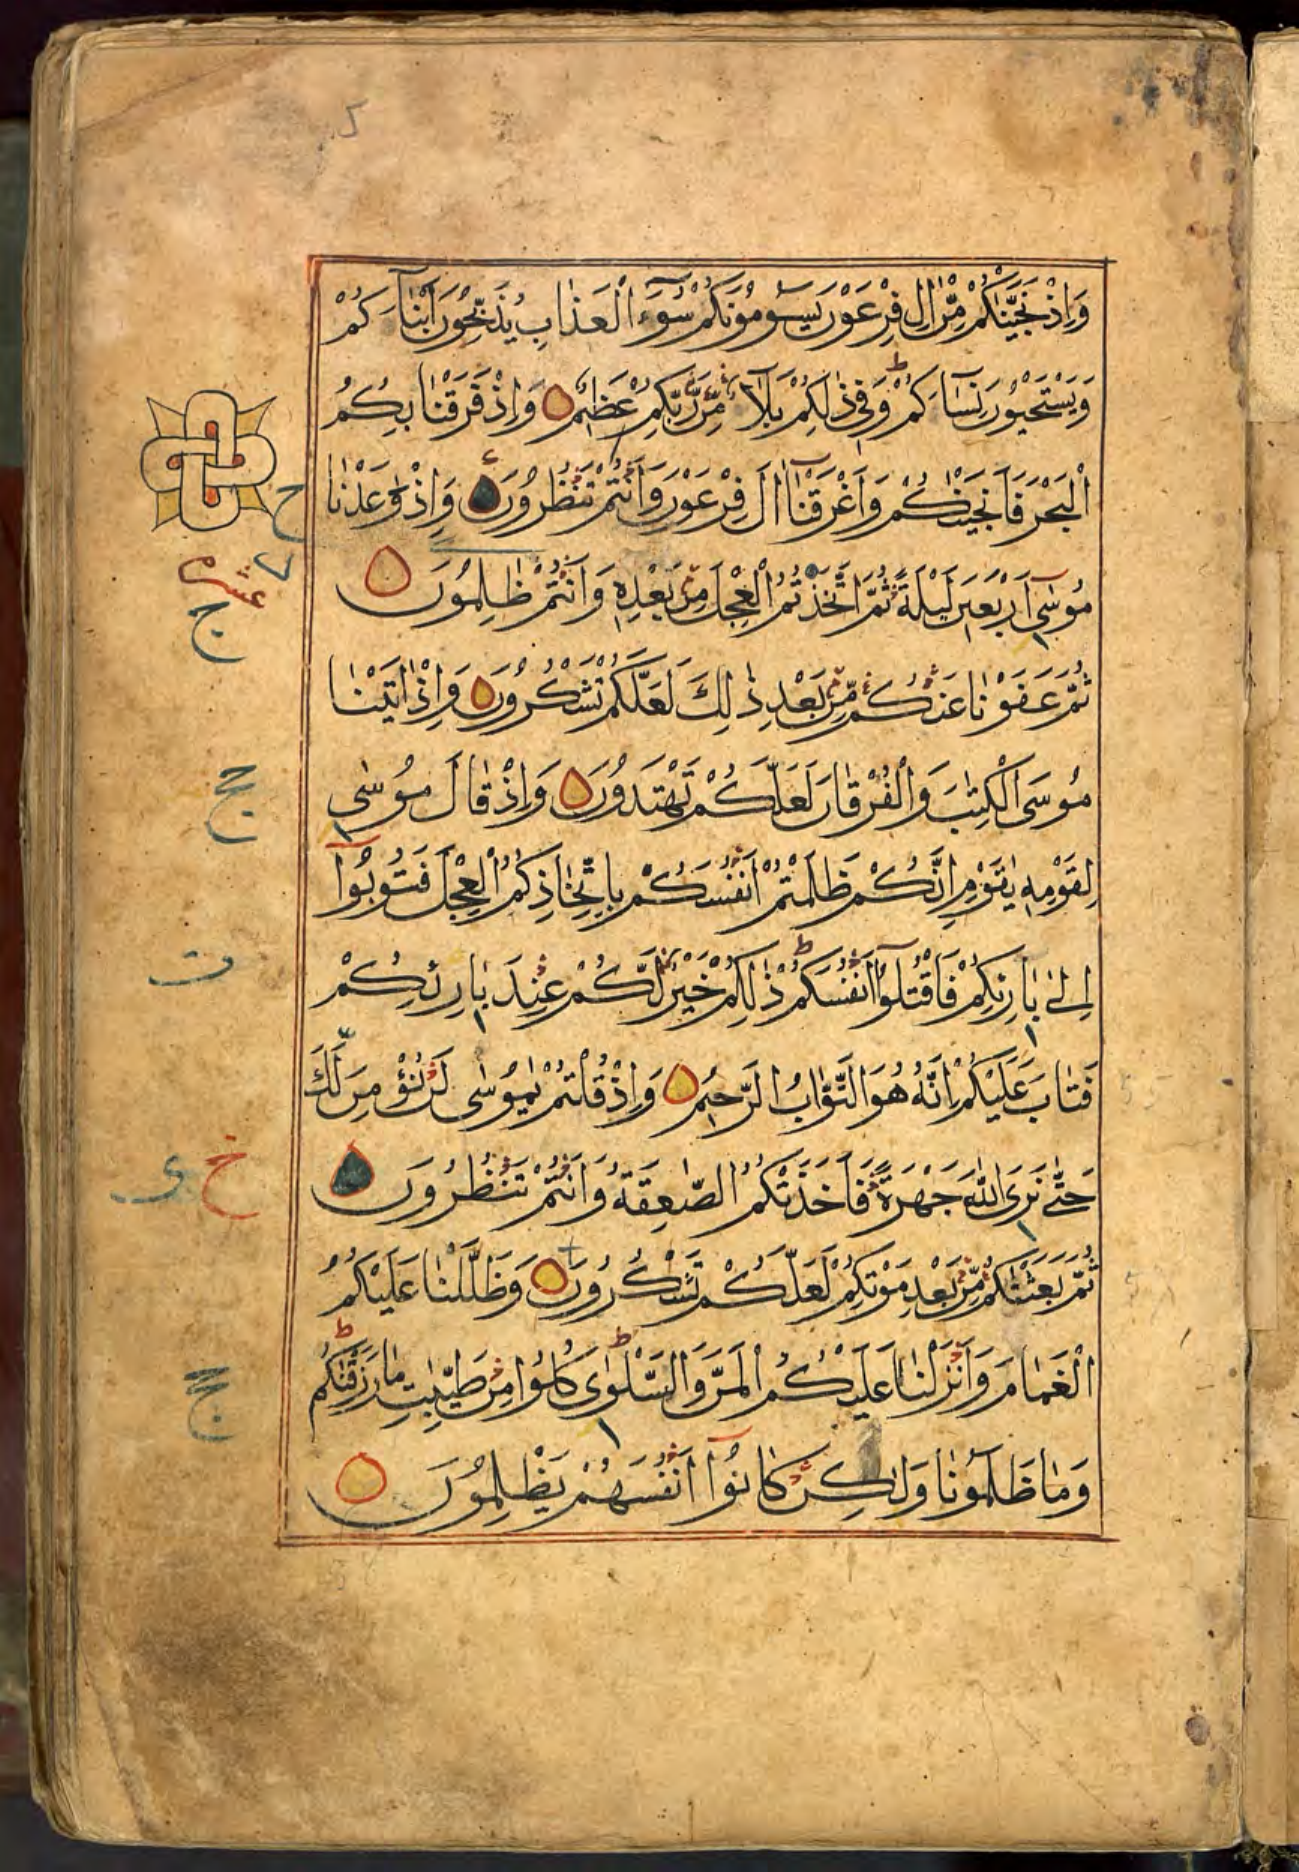 وَاِذْ نَجَّيْنٰكُمْ مِّنْ اٰلِ فِرْعَوْنَ يَسُوْمُوْنَكُمْ سُوْٓءَ الْعَذَابِ يُذَبِّحُوْنَ اَبْنَآءَكُمْ
وَيَسْتَحْيُوْنَ نِسَآءَكُمْ ط وَفِيْ ذٰلِكُمْ بَلَآءٌ مِّنْ رَّبِّكُمْ عَظِيْمٌ وَاِذْ فَرَقْنَا بِكُمُ
الْبَحْرَ فَاَنْجَيْنٰكُمْ وَاَغْرَقْنَآ اٰلَ فِرْعَوْنَ وَاَنْتُمْ تَنْظُرُوْنَ وَاِذْ وٰعَدْنَا
مُوْسٰٓى اَرْبَعِيْنَ لَيْلَةً ثُمَّ اتَّخَذْتُمُ الْعِجْلَ مِنْ بَعْدِهٖ وَاَنْتُمْ ظٰلِمُوْنَ
ثُمَّ عَفَوْنَا عَنْكُمْ مِّنْ بَعْدِ ذٰلِكَ لَعَلَّكُمْ تَشْكُرُوْنَ وَاِذْ اٰتَيْنَا
مُوْسَى الْكِتٰبَ وَالْفُرْقَانَ لَعَلَّكُمْ تَهْتَدُوْنَ وَاِذْ قَالَ مُوْسٰى
لِقَوْمِهٖ يٰقَوْمِ اِنَّكُمْ ظَلَمْتُمْ اَنْفُسَكُمْ بِاتِّخَاذِكُمُ الْعِجْلَ فَتُوْبُوْٓا
اِلٰى بَارِئِكُمْ فَاقْتُلُوْٓا اَنْفُسَكُمْ ط ذٰلِكُمْ خَيْرٌ لَّكُمْ عِنْدَ بَارِئِكُمْ
فَتَابَ عَلَيْكُمْ اِنَّهٗ هُوَ التَّوَّابُ الرَّحِيْمُ وَاِذْ قُلْتُمْ يٰمُوْسٰى لَنْ نُّؤْمِنَ لَكَ
حَتّٰى نَرَى اللّٰهَ جَهْرَةً فَاَخَذَتْكُمُ الصّٰعِقَةُ وَاَنْتُمْ تَنْظُرُوْنَ
ثُمَّ بَعَثْنٰكُمْ مِّنْ بَعْدِ مَوْتِكُمْ لَعَلَّكُمْ تَشْكُرُوْنَ وَظَلَّلْنَا عَلَيْكُمُ
الْغَمَامَ وَاَنْزَلْنَا عَلَيْكُمُ الْمَنَّ وَالسَّلْوٰى ط كُلُوْا مِنْ طَيِّبٰتِ مَا رَزَقْنٰكُمْ ط
وَمَا ظَلَمُوْنَا وَلٰكِنْ كَانُوْٓا اَنْفُسَهُمْ يَظْلِمُوْنَ
عشره